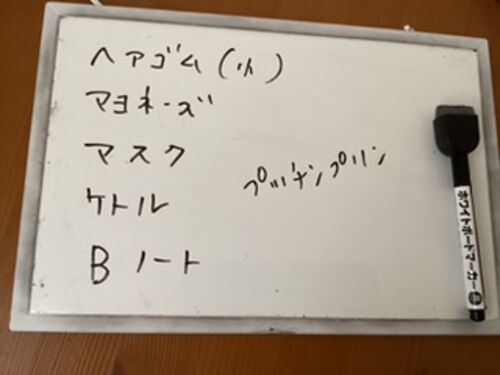 ヘアゴム(小)
マヨネーズ
マスク
ケトル
Bノート
プッチンプリン
ホワイトボードマーカー